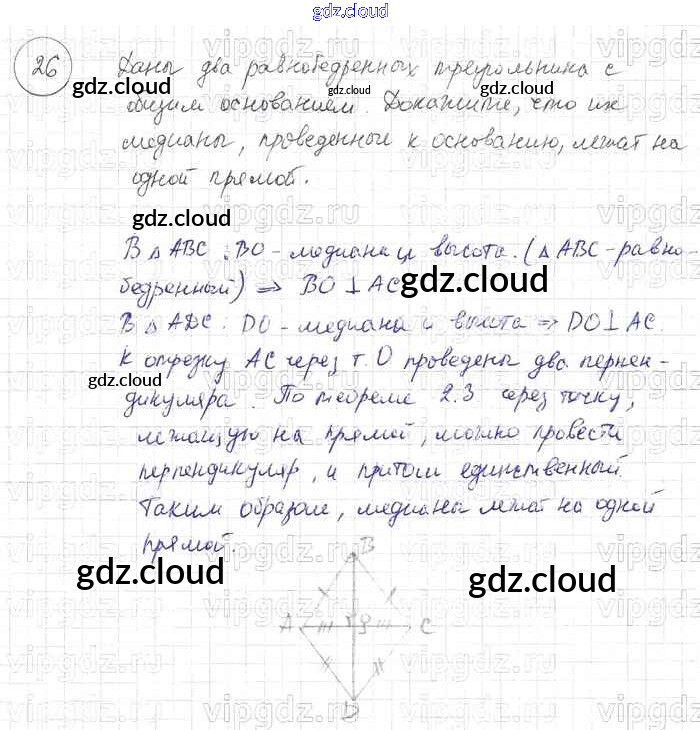 gdz.cloud
26
Даны два равнобедренных треугольника с
общим основанием. Докажите, что их
медианы, проведенные к основанию, лежат на
одной прямой.
В △ ABC : BO - медиана и высота. (△ ABC - равно-
бедренный) ⇒ BO ⊥ AC
В △ ADC : DO - медиана и высота ⇒ DO ⊥ AC.
К отрезку AC через т. O проведены два перпен-
дикуляра. По теореме 2.3 через точку,
лежащую на прямой, можно провести
перпендикуляр, и притом единственный.
Таким образом, медианы лежат на одной
прямой.
B
A O C
D
gdz.cloud
gdz.cloud
gdz.cloud
gdz.cloud
gdz.cloud
gdz.cloud
gdz.cloud
gdz.cloud
gdz.cloud
vipgdz.ru